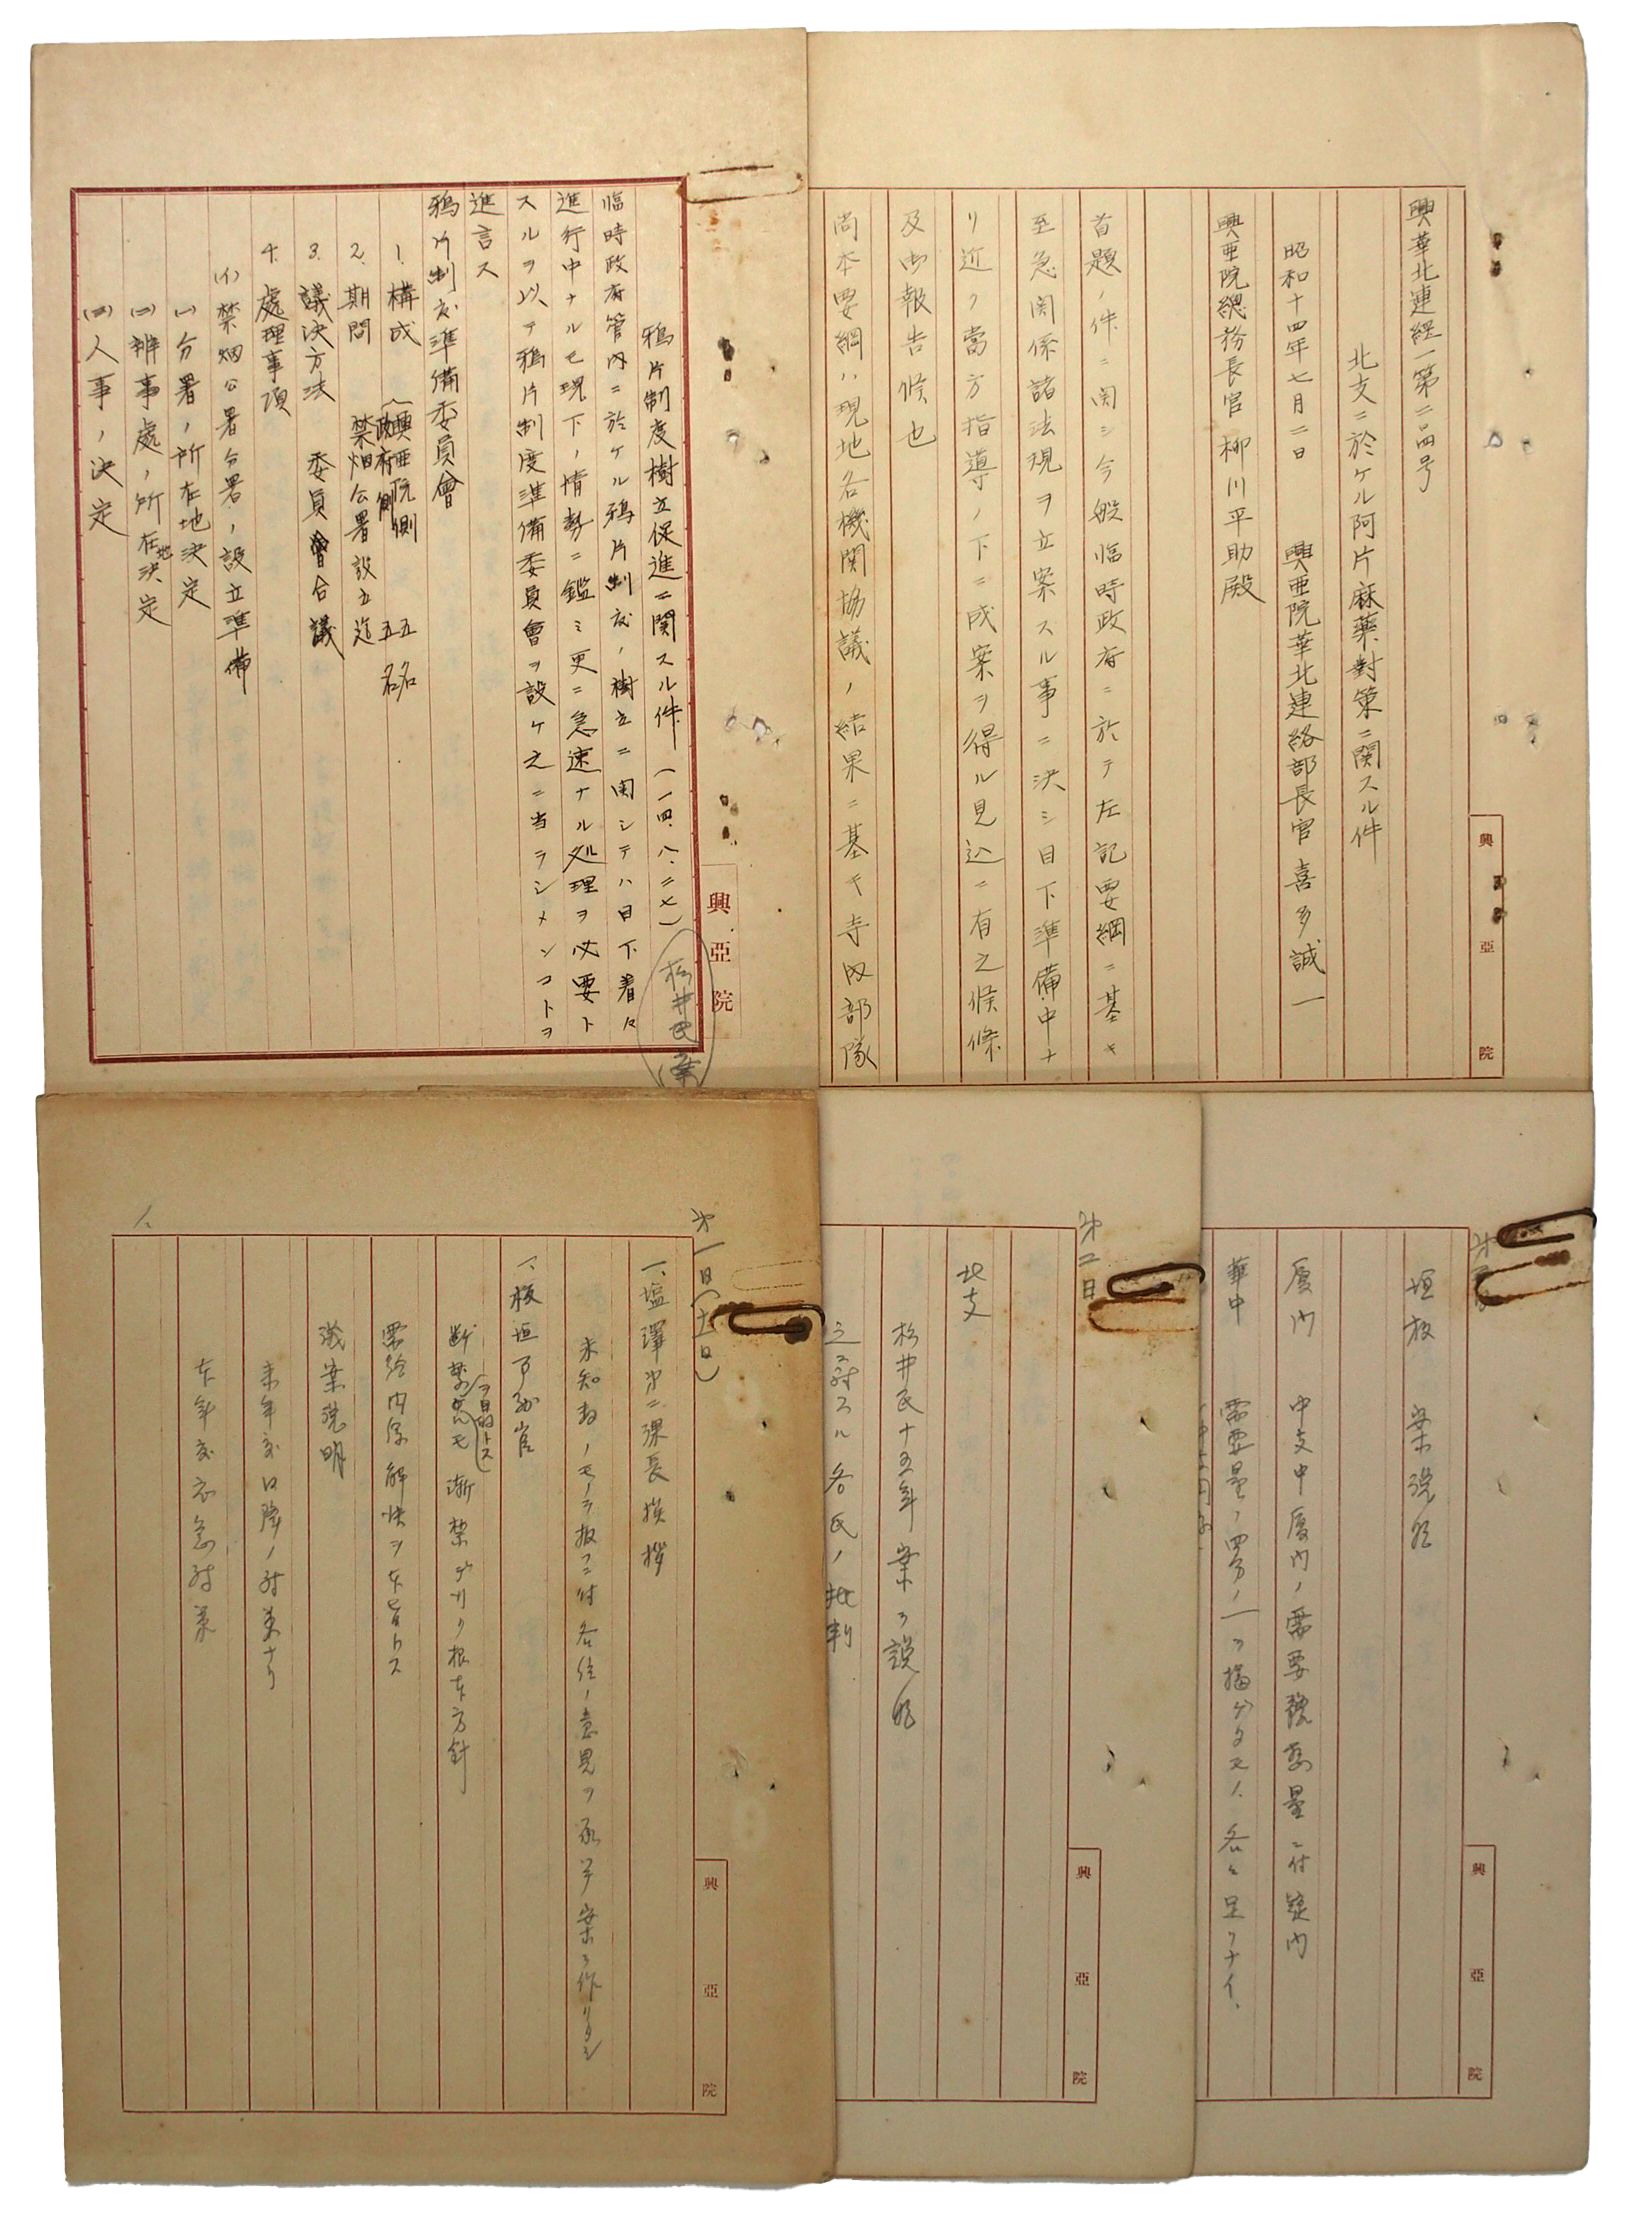 興華北連経一第二四号
北支ニ於ケル阿片麻薬対策ニ関スル件
昭和十四年七月二日
興亜院華北連絡部長官 喜多誠一
興亜院総務長官 柳川平助殿
首題ノ件ニ関シ今般臨時政府ニ於テ左記要綱ニ基キ
至急関係諸法規ヲ立案スル事ニ決シ目下準備中ナ
リ近ク当方指導ノ下ニ成案ヲ得ル見込ニ有之候條
及御報告候也
尚本要綱ハ現地各機関協議ノ結果ニ基キ寺内部隊
興亜院
鴉片制度樹立促進ニ関スル件 (一四、八、二七)
松井氏案
臨時政府管内ニ於ケル鴉片制度ノ樹立ニ関シテハ目下着々
進行中ナルモ現下ノ情勢ニ鑑ミ更ニ急速ナル処理ヲ必要ト
スルヲ以テ鴉片制度準備委員會ヲ設ケ之ニ当ラシメンコトヲ
進言ス
鴉片制度準備委員會
1. 構成 興亜院側 五名
政府側 五名
2. 期間 禁烟公署設立迄
3. 議決方法 委員會合議
4. 處理事項
(イ) 禁烟公署分署ノ設立準備
(一) 分署ノ所在地決定
(二) 辨事處ノ所在地決定
(三) 人事ノ決定
興亞院
垣板 案説明
厦門 中支中厦門ノ需要
華中 需要量ノ四分ノ一ヲ
興亞院
第二日
北支
松井氏十五年案ヲ説明
ニ対スル各氏ノ批判
興亞院
第一日(十一日)
一、塩澤第二課長挨拶
未知数ノモノヲ扱フニ付各位ノ意見ヲ承リ案ヲ作リタシ
一、板垣事務官
断禁ヲ目的トスルモ漸禁ガ根本方針
需給内容解決ヲ本旨トス
議案説明
来年度以降ノ対策ナリ
本年度応急対策
興亞院